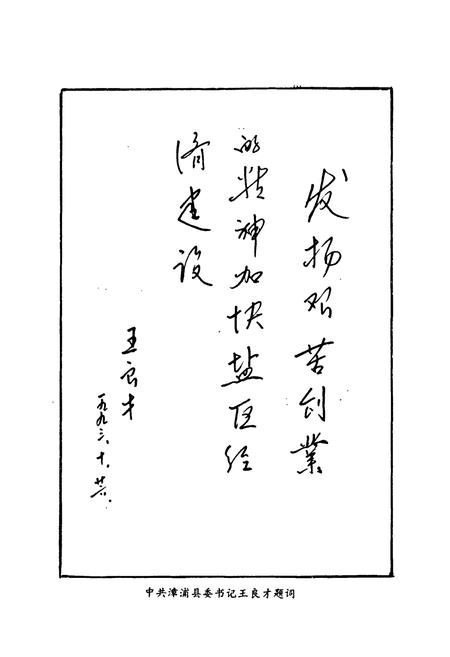 发扬艰苦创業
的精神加快盐区经
济建设
王良才
一九九三、十、廿六、
中共漳浦县委书记王良才题词